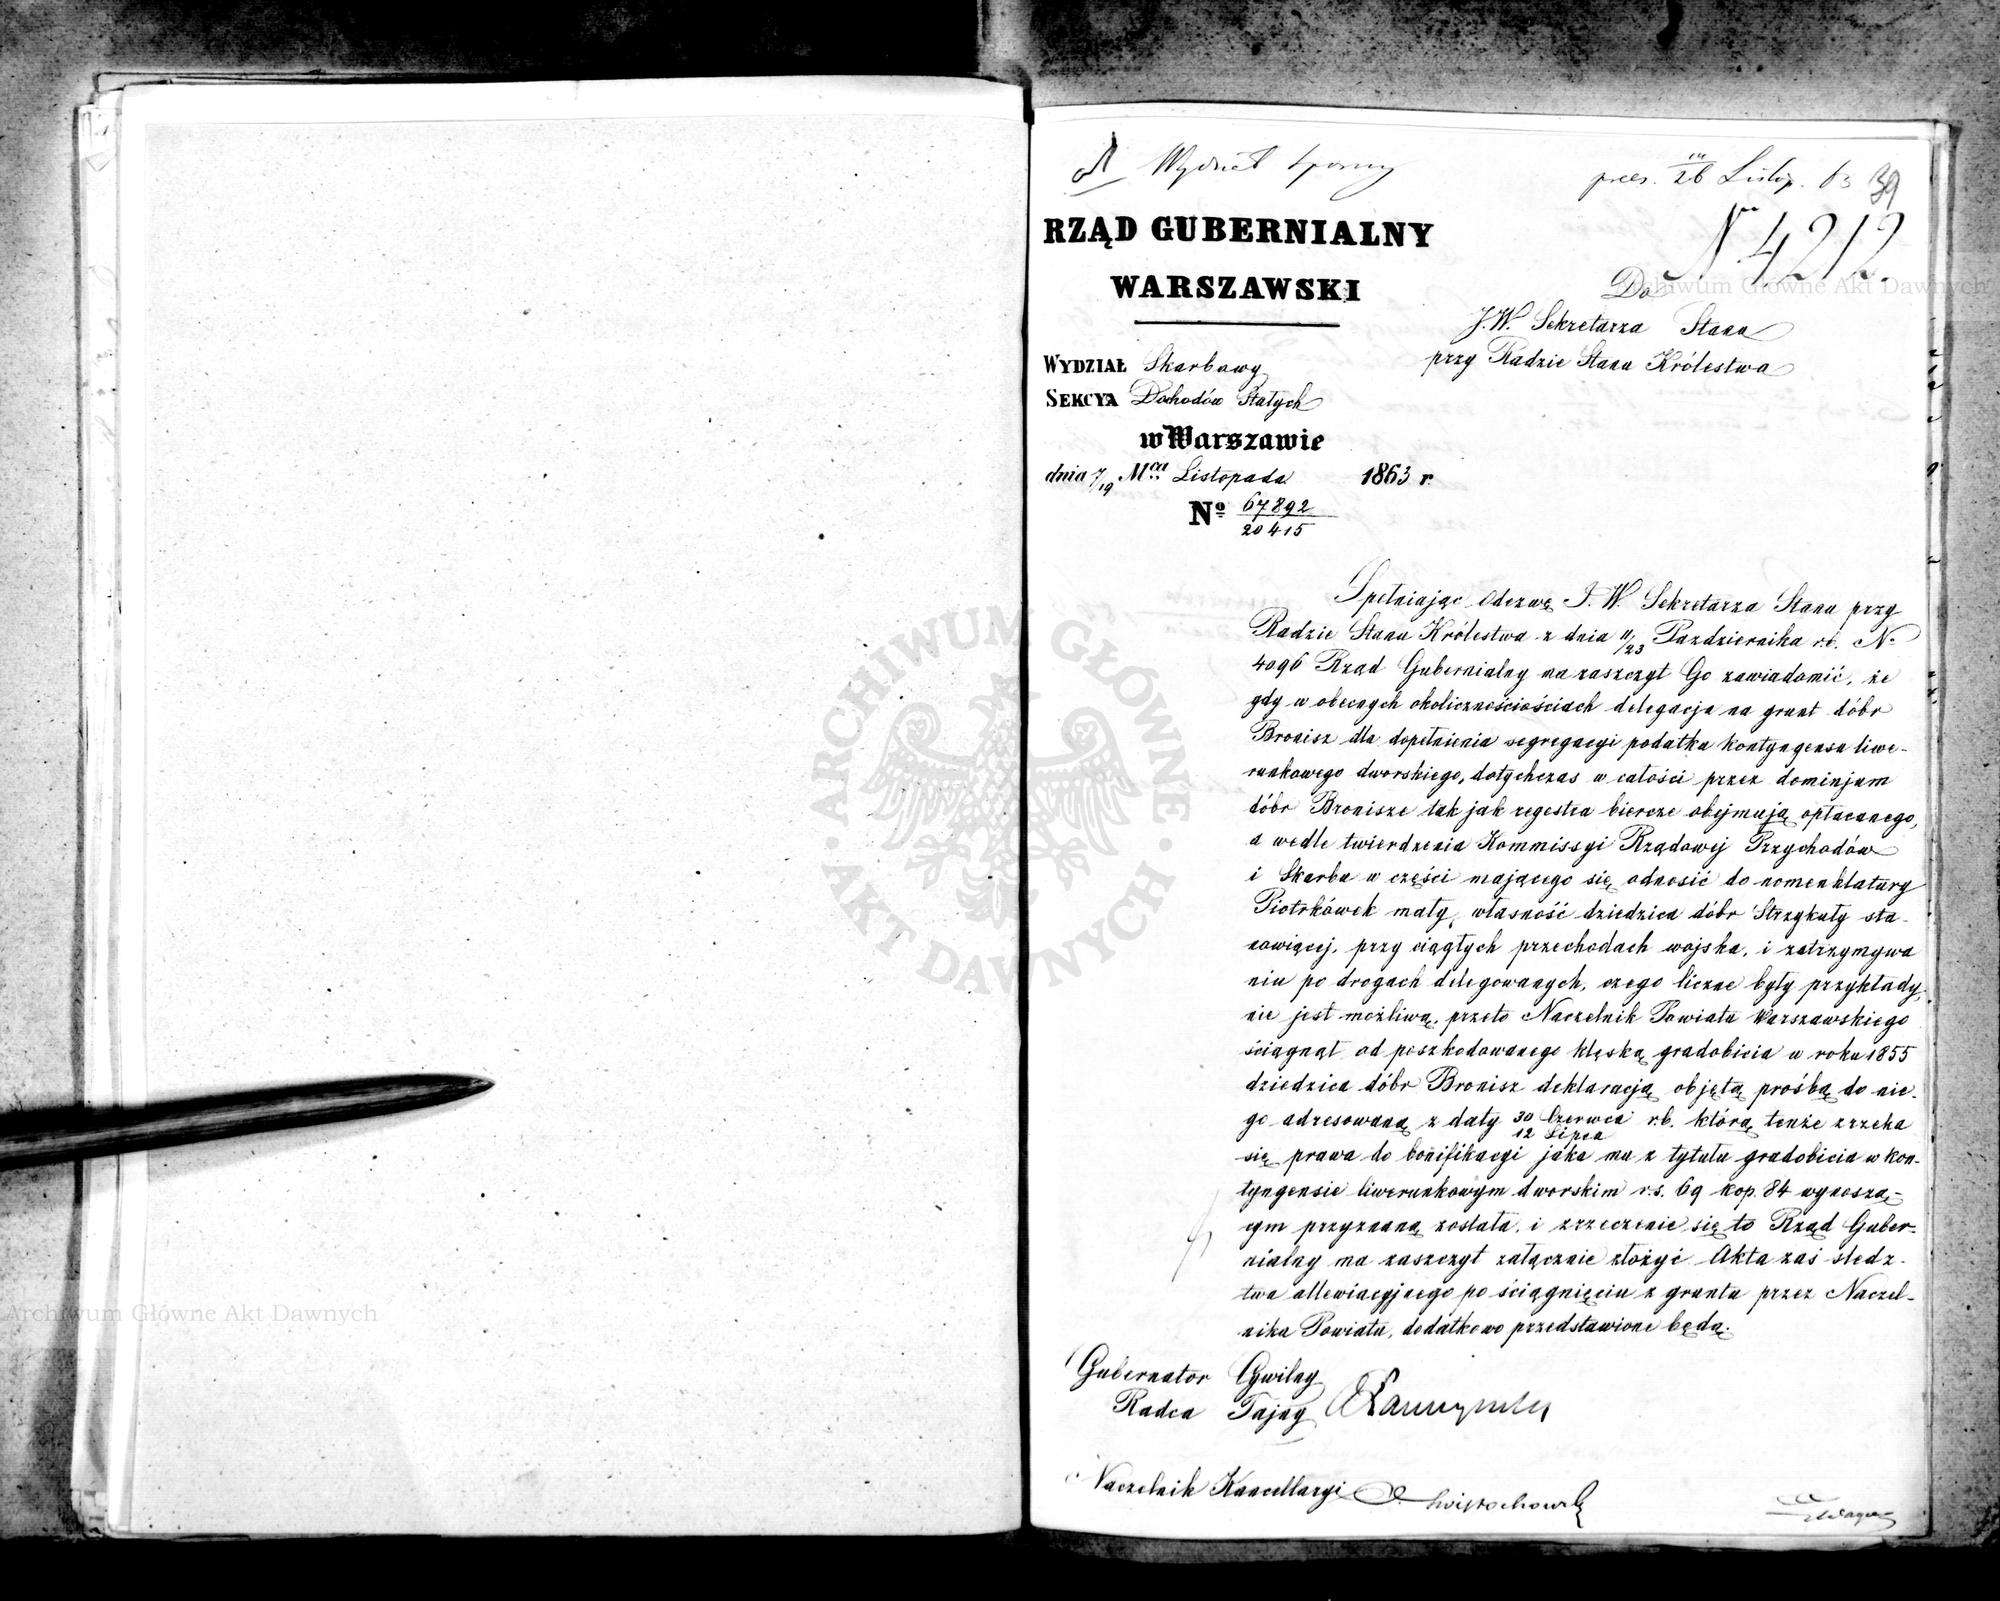 Wydział sporny
26 Listop. 63
39
N 4212.
RZĄD GUBERNIALNY
WARSZAWSKI
Do
J.W. Sekretarza Stanu
przy Radzie Stanu Królestwa
WYDZIAŁ Skarbowy
SEKCYA Dochodów Stałych
w Warszawie
dnia 7/19 Mca Listopada 1863 r.
No 67892
20415
Spełniając Odezwę J. W. Sekretarza Stanu przy
Radzie Stanu Królestwa z dnia 11/23 Pazdziernika r.b. N.
4096 Rząd Gubernialny ma zaszczyt Go zawiadomić, że
gdy w obecnych okolicznościościach delegacja na grunt dóbr
Bronisz dla dopełnienia segregacyi podatku kontyngensu liwe-
runkowego dworskiego, dotychczas w całości przez dominjum
dóbr Bronisze tak jak regestra biercze obejmują opłacanego,
a wedle twierdzenia Kommissyi Rządowej Przychodów
i Skarbu w części mającego się odnosić do nomenklatury
Piotrkówek mały, własność dziedzica dóbr Strzykuły sta-
nowiącej, przy ciągłych przechodach wojska, i zatrzymywa
niu po drogach delegowanych, czego liczne były przykłady,
nie jest możliwą, przeto Naczelnik Powiatu Warszawskiego
ściągnął od poszkodowanego klęską gradobicia w roku 1855
dziedzica dóbr Bronisz deklaracją objętą prośbą do nie-
go adresowaną z daty 30 Czerwca r.b. którą tenże zrzeka
12 Lipca
się prawa do bonifikacyi jaka mu z tytułu gradobicia w kon-
tyngensie liwerunkowym dworskim r.s. 69 kop. 84 wynoszą-
cym przyznaną została, i zrzeczenie się to Rząd Guber-
nialny ma zaszczyt załącznie złożyć Akta zaś śledz-
twa allewiacyjnego po ściągnięciu z gruntu przez Naczel-
nika Powiatu, dodatkowo przedstawione będą.
Gubernator Cywilny
Radca Tajny
Naczelnik Kancellaryi Świętochowski
Archiwum Główne Akt Dawnych
ARCHIWUM GŁÓWNE · AKT DAWNYCH ·
Archiwum Główne Akt Dawnych